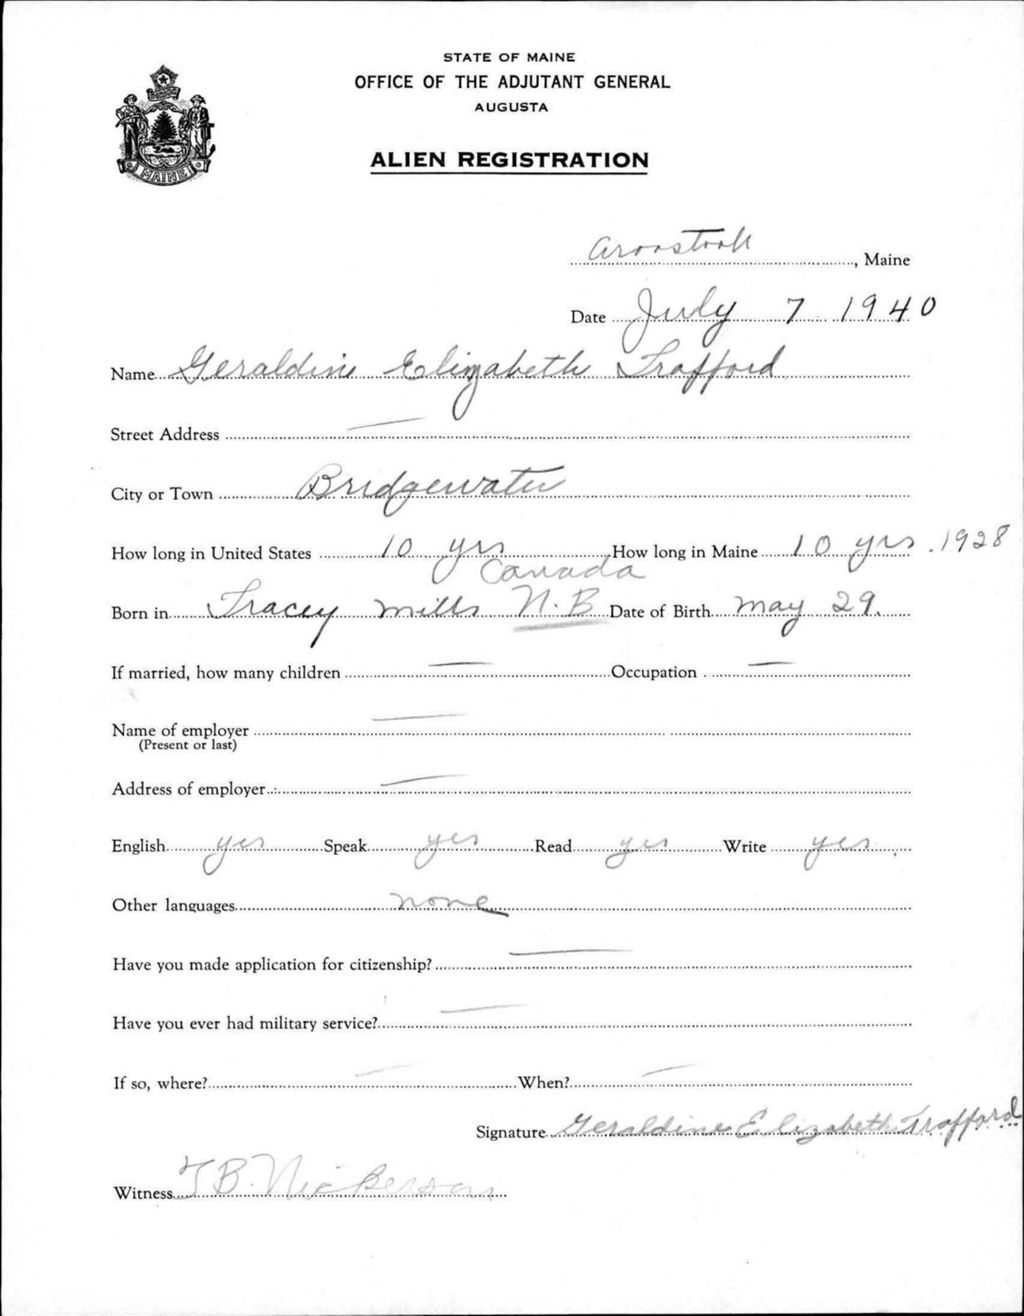 STATE OF MAINE
OFFICE OF THE ADJUTANT GENERAL
AUGUSTA
ALIEN REGISTRATION
MAINE
Aroostook, Maine
Date July 7 1940
Name Geraldine Elizabeth Trafford
Street Address —
City or Town Bridgewater
How long in United States 10 yrs How long in Maine 10 yrs. 1928
Canada
Born in Tracey Mills N.B Date of Birth May 29.
If married, how many children — Occupation —
Name of employer —
(Present or last)
Address of employer —
English yes Speak yes Read yes Write yes
Other languages none
Have you made application for citizenship? —
Have you ever had military service? —
If so, where? — When? —
Signature Geraldine Elizabeth Trafford
Witness T B. Nickerson